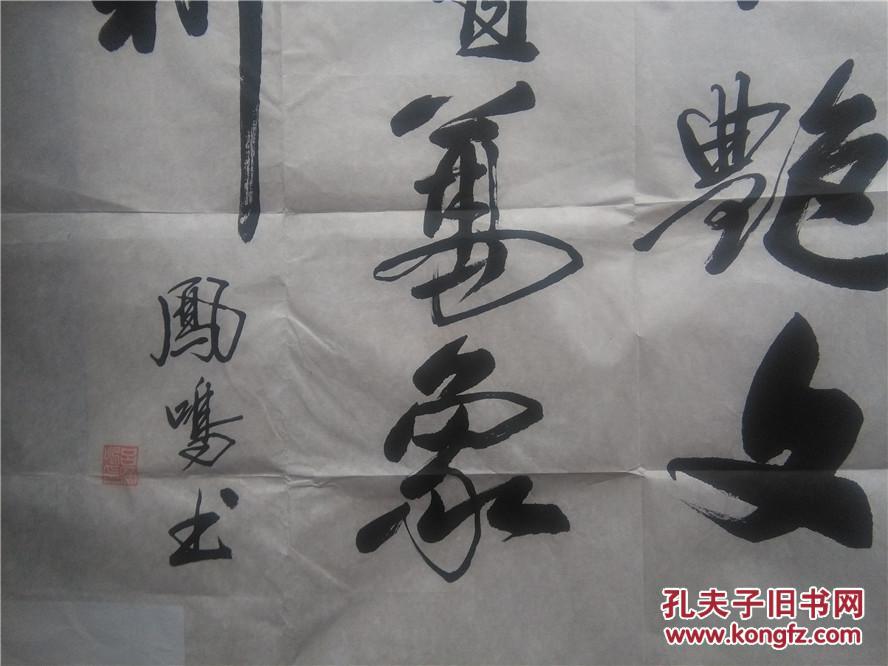 艷文
萬象
新
鳳鳴书
孔夫子旧书网
www.kongfz.com